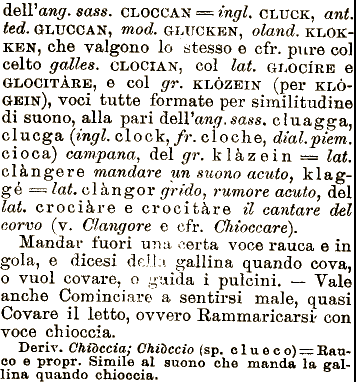 dell'ang. sass. CLOCCAN = ingl. CLUCK, ant.
ted. GLUCCAN, mod. GLUCKEN, oland. KLOK-
KEN, che valgono lo stesso e cfr. pure col
celto galles. CLOCIAN, col lat. GLOCÍRE e
GLOCITÀRE, e col gr. KLÒZEIN (per KLÒ-
GEIN), voci tutte formate per similitudine
di suono, alla pari dell'ang. sass. cluagga,
clucga (ingl. clock, fr. cloche, dial. piem.
cioca) campana, del gr. klàzein = lat.
clàngere mandare un suono acuto, klag-
gé = lat. clàngor grido, rumore acuto, del
lat. crociàre e crocitàre il cantare del
corvo (v. Clangore e cfr. Chioccare).
Mandar fuori una certa voce rauca e in
gola, e dicesi della gallina quando cova,
o vuol covare, o guida i pulcini. — Vale
anche Cominciare a sentirsi male, quasi
Covare il letto, ovvero Rammaricarsi con
voce chioccia.
Deriv. Chiòccia; Chiòccio (sp. clueco) = Rau-
co e propr. Simile al suono che manda la gal-
lina quando chioccia.